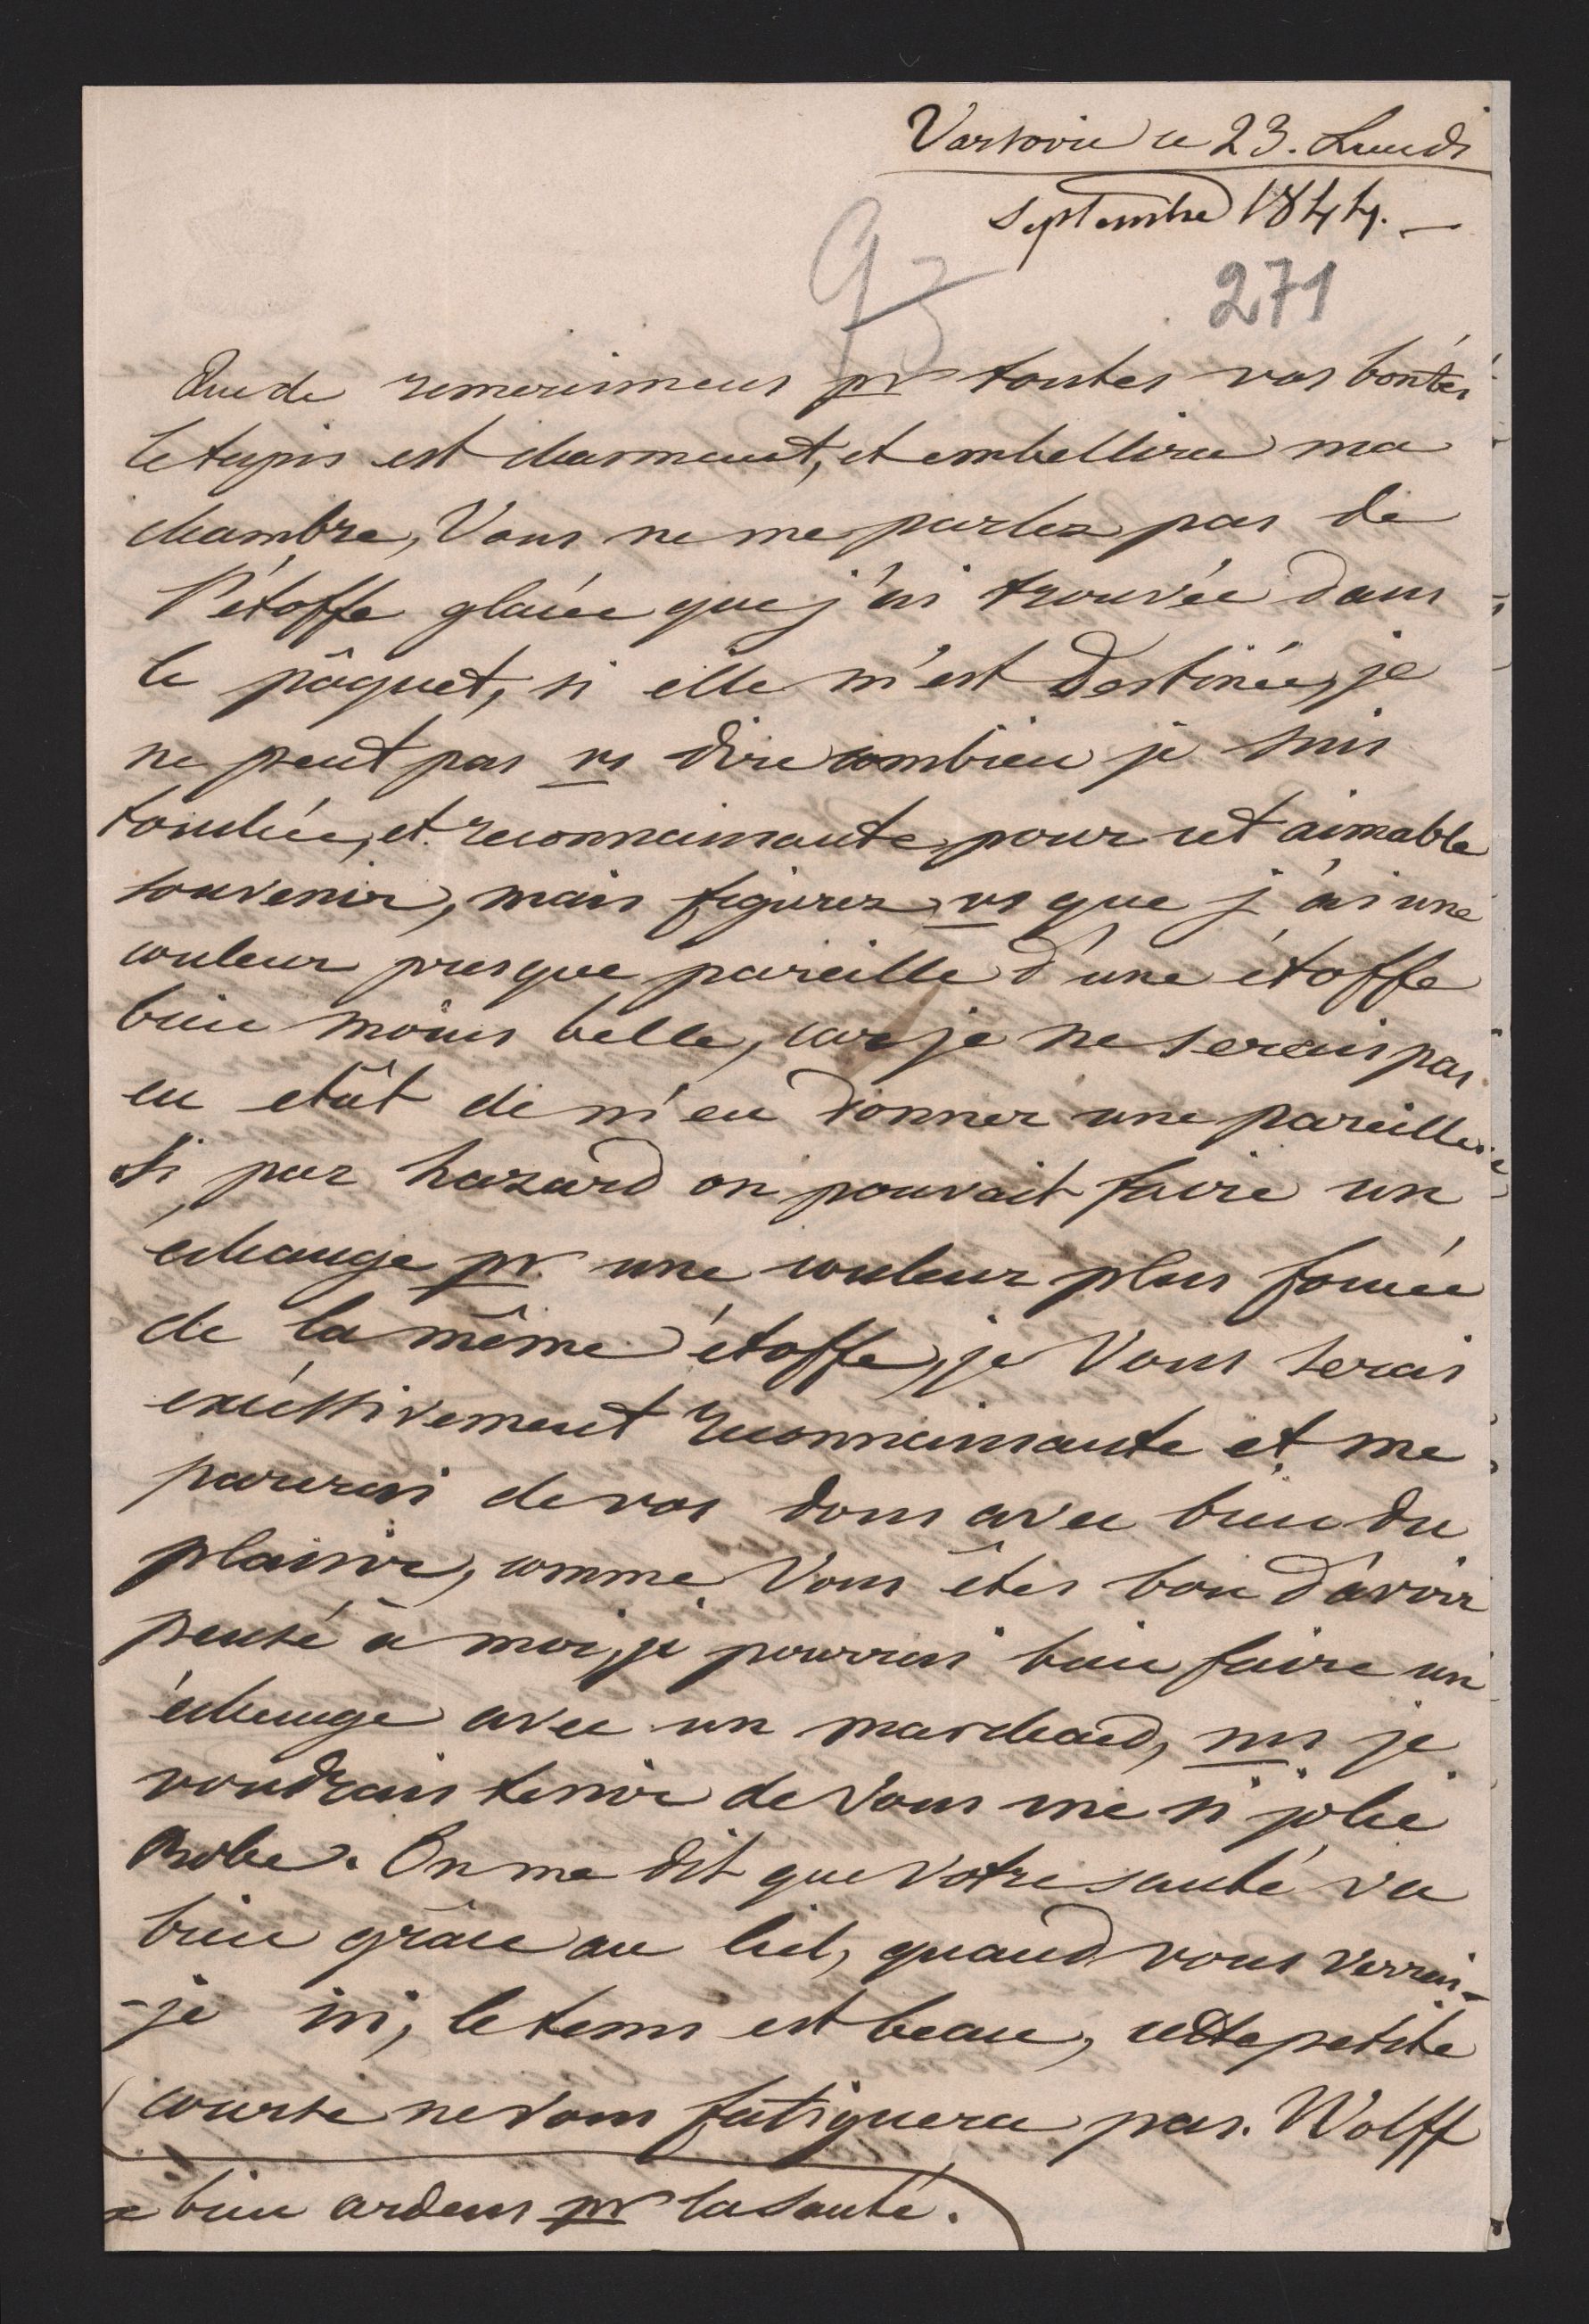 Varsovie ce 23. Lundi
Septembre 1844. —
93
271
Que de remercimens pr toutes vos bontés
le tapis est charmant, et embellira ma
chambre, Vous ne me parlez pas de
l'étoffe glacée que j'ai trouvée dans
le pâquet, si elle m'est destinée, je
ne peut pas vs dire combien je suis
touchée, et reconnaissante, pour cet aimable
souvenir, mais figurez vs que j'ai une
couleur presque pareille d'une étoffe
bien moins belle, car je ne serais pas
en etât de m'en donner une pareille.
Si par hazard on pouvait faire un
échange pr une couleur plus foncée
de la même étoffe, je Vous serais
excéssivement reconnaissante et me
parerai de vos dons avec bien du
plaisir, comme Vous êtes bon d'avoir
pensé à moi, je pourrai bien faire un
échange avec un marchand, ms je
voudrais tenir de Vous une si jolie
Robe. On me dit que Votre santé va
bien grâce au Ciel, quand vous verrai-
-je ici, le tems est beau, cette petite
course ne Vous fatiguera pas. Wolff
bien ardens pr la santé.